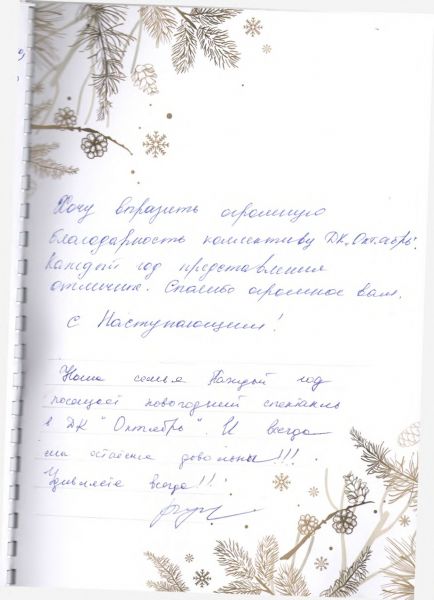 Хочу выразить огромную
благодарность коллективу ДК „Октябрь".
Каждый год представления
отличные. Спасибо огромное вам.
С Наступающим!
Наша семья Каждый год
посещает новогодний спектакль
в ДК "Октябрь". И всегда
мы остаёмся довольны!!!
Удивляете всегда!!!